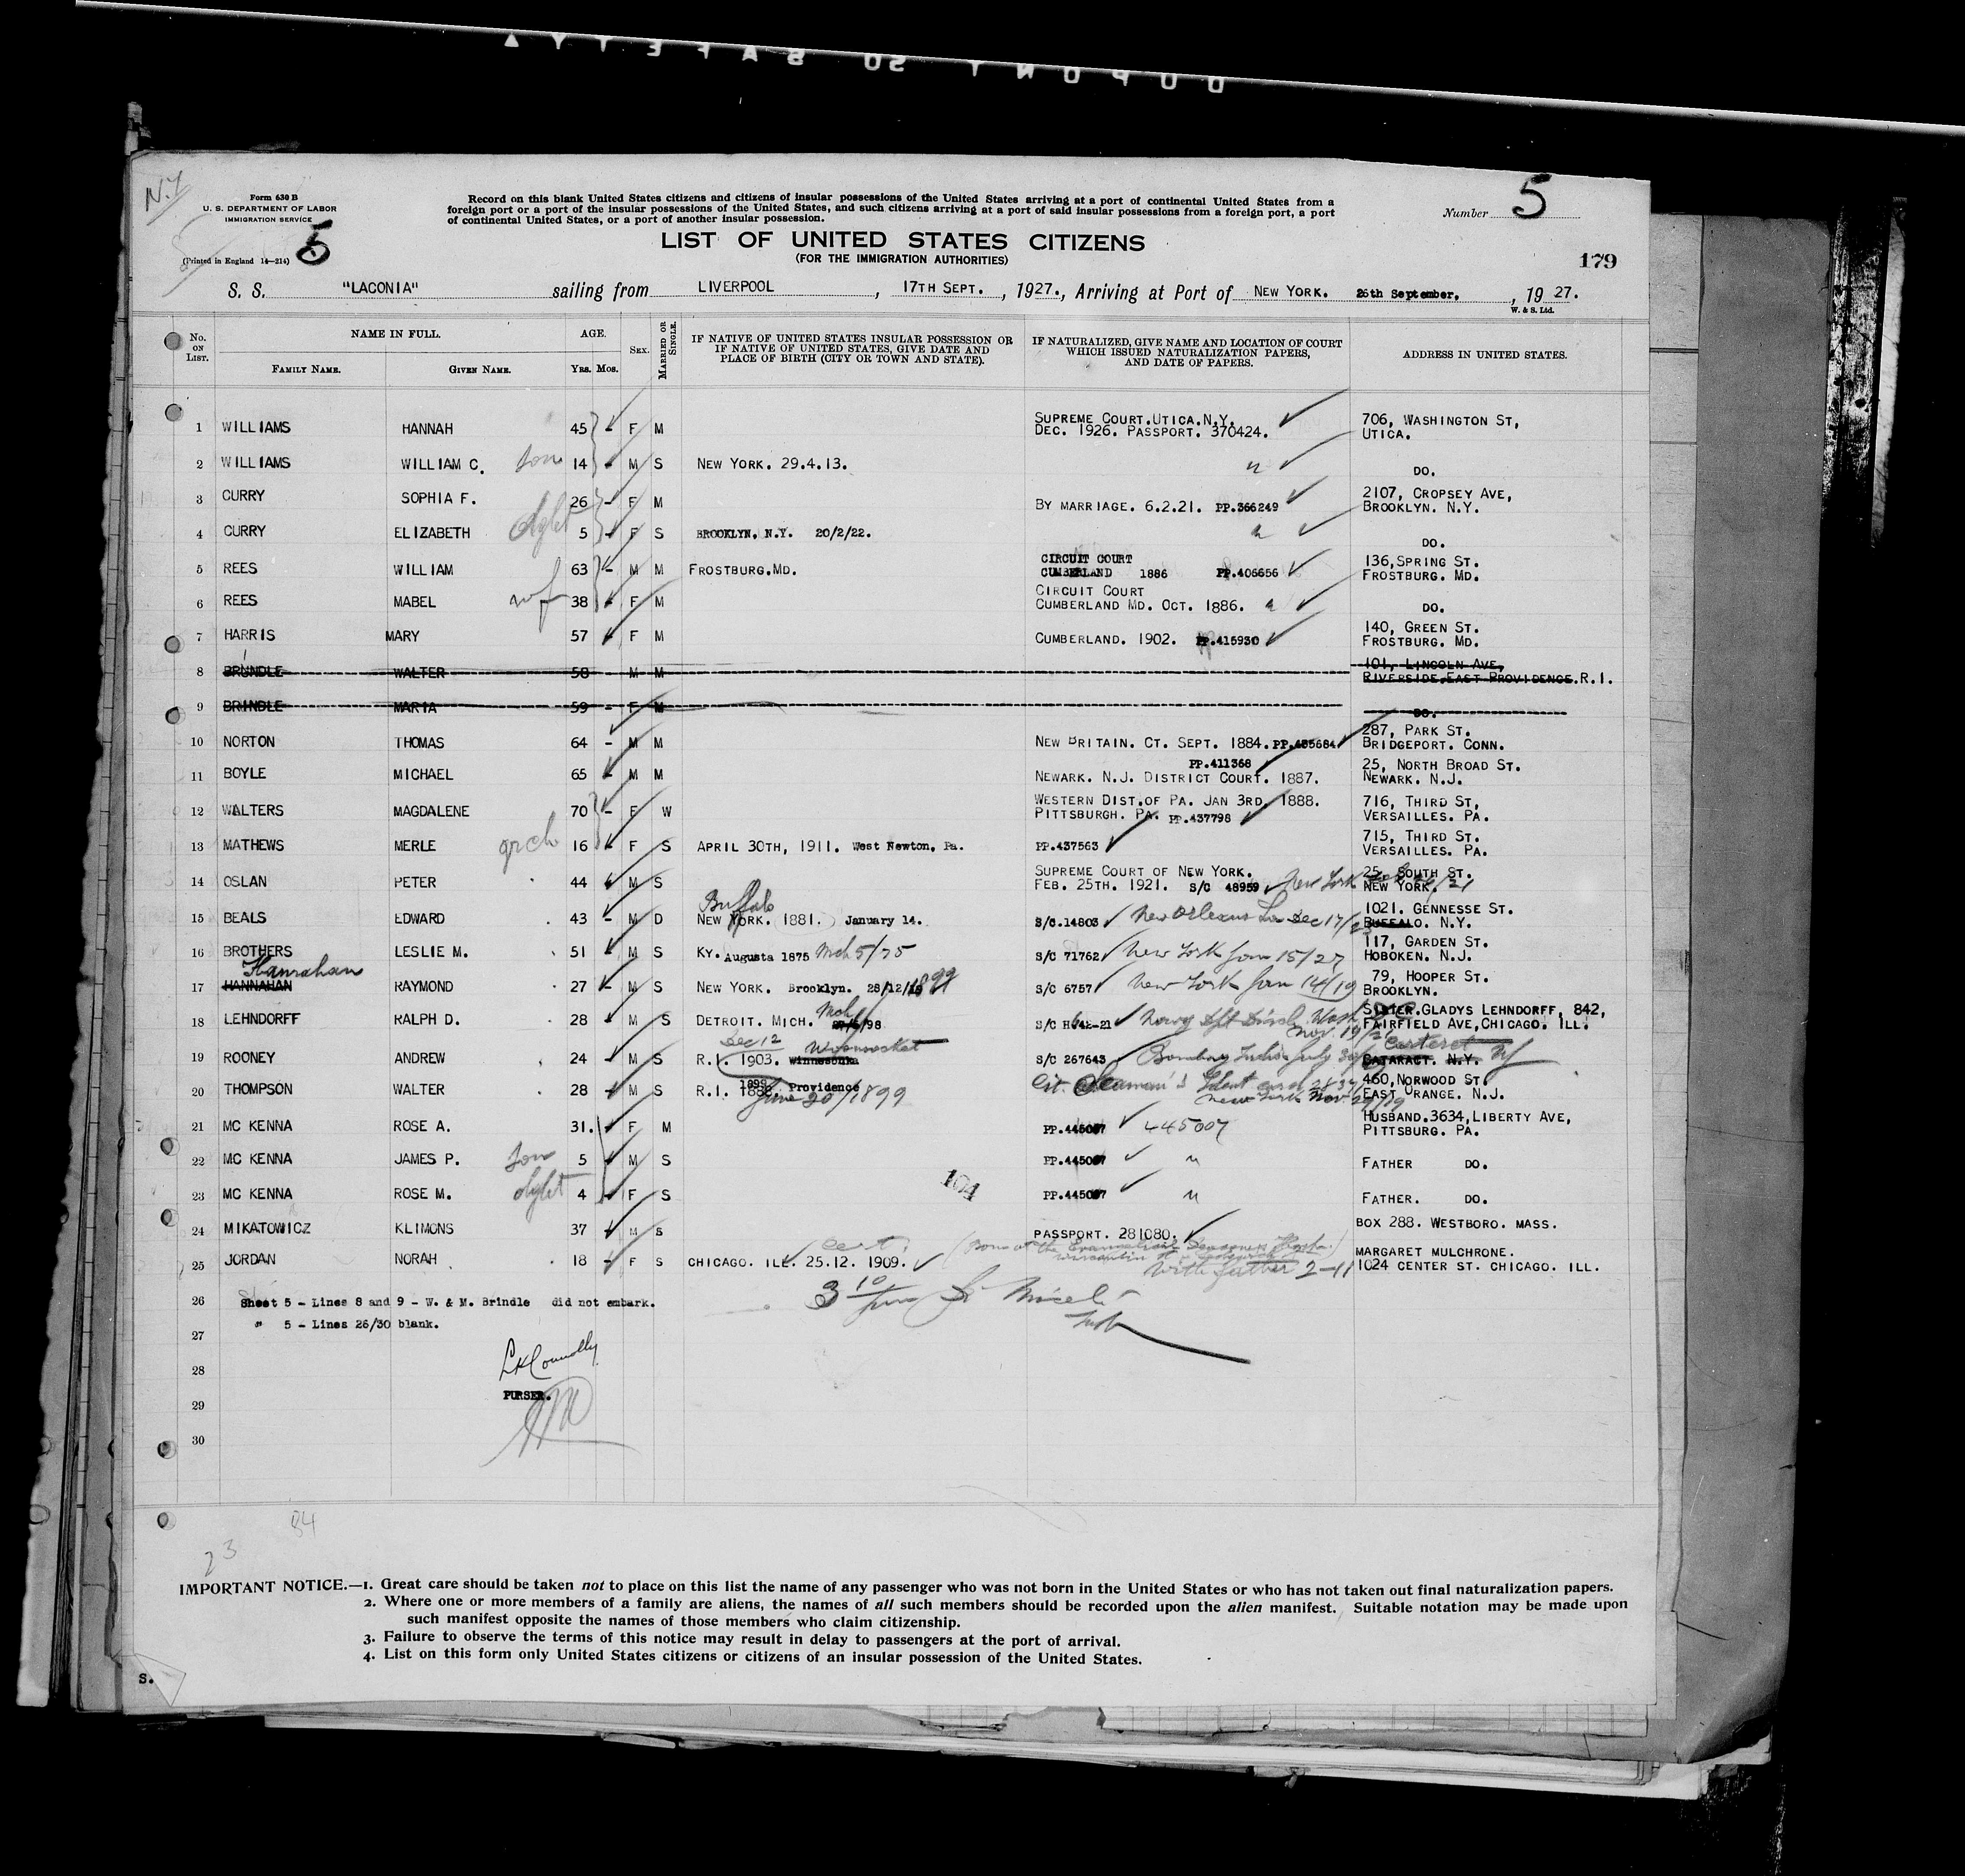 DUPONT SAFETY
N.Y
Form 630 B
U. S. DEPARTMENT OF LABOR
IMMIGRATION SERVICE
(Printed in England 14—214)
5
Record on this blank United States citizens and citizens of insular possessions of the United States arriving at a port of continental United States from a
foreign port or a port of the insular possessions of the United States, and such citizens arriving at a port of said insular possessions from a foreign port, a port
of continental United States, or a port of another insular possession.
Number 5
LIST OF UNITED STATES CITIZENS
(FOR THE IMMIGRATION AUTHORITIES)
179
S. S. "LACONIA" sailing from LIVERPOOL, 17TH SEPT., 1927., Arriving at Port of NEW YORK. 26th September, , 19 27.
W. & S. Ltd.
No. ON LIST. NAME IN FULL. AGE. SEX. MARRIED OR SINGLE. IF NATIVE OF UNITED STATES INSULAR POSSESSION OR IF NATIVE OF UNITED STATES, GIVE DATE AND PLACE OF BIRTH (CITY OR TOWN AND STATE). IF NATURALIZED, GIVE NAME AND LOCATION OF COURT WHICH ISSUED NATURALIZATION PAPERS, AND DATE OF PAPERS. ADDRESS IN UNITED STATES.
FAMILY NAME. GIVEN NAME. YRS. MOS.
1 WILLIAMS HANNAH 45 - F M SUPREME COURT.UTICA.N.Y. DEC. 1926. PASSPORT. 370424. 706, WASHINGTON ST, UTICA.
2 WILLIAMS WILLIAM C. son 14 - M S NEW YORK. 29.4.13. " DO.
3 CURRY SOPHIA F. 26 - F M BY MARRIAGE. 6.2.21. PP.366249 2107, CROPSEY AVE, BROOKLYN. N.Y.
4 CURRY ELIZABETH dght 5 - F S BROOKLYN, N.Y. 20/2/22. " DO.
5 REES WILLIAM 63 - M M FROSTBURG.MD. CIRCUIT COURT CUMBERLAND 1886 PP.406656 136,SPRING ST. FROSTBURG. MD.
6 REES MABEL wf 38 - F M CIRCUIT COURT CUMBERLAND MD. OCT. 1886. " DO.
7 HARRIS MARY 57 - F M CUMBERLAND. 1902. PP.415930 140, GREEN ST. FROSTBURG. MD.
8 BRINDLE WALTER 58 - M M 101, LINCOLN AVE, RIVERSIDE,EAST PROVIDENCE.R.I.
9 BRINDLE MARIA 59 - F M DO.
10 NORTON THOMAS 64 - M M NEW BRITAIN. CT. SEPT. 1884. PP.435684 287, PARK ST. BRIDGEPORT. CONN.
11 BOYLE MICHAEL 65 - M M PP.411368 NEWARK. N.J. DISTRICT COURT. 1887. 25, NORTH BROAD ST. NEWARK. N.J.
12 WALTERS MAGDALENE 70 - F W WESTERN DIST.OF PA. JAN 3RD, 1888. PITTSBURGH. PA. PP.437798 716, THIRD ST, VERSAILLES. PA.
13 MATHEWS MERLE grch 16 - F S APRIL 30TH, 1911. West Newton, Pa. PP.437563 715, THIRD ST. VERSAILLES. PA.
14 OSLAN PETER 44 - M S SUPREME COURT OF NEW YORK. FEB. 25TH. 1921. S/C 48959 New York 25, SOUTH ST. NEW YORK.
15 BEALS EDWARD 43 - M D Buffalo NEW YORK. 1881. January 14. S/C.14803 New Orleans La Dec 17/23 1021. GENNESSE ST. BUFFALO. N.Y.
16 BROTHERS LESLIE M. 51 - M S KY. Augusta 1875 Mch 5/75 S/C 71762 New York Jan 15/27 117, GARDEN ST. HOBOKEN. N.J.
Hanrahan
17 HANNAHAN RAYMOND 27 - M S NEW YORK. Brooklyn. 28/12/1899 S/C 6757 New York Jan 14/19 79, HOOPER ST. BROOKLYN.
18 LEHNDORFF RALPH D. 28 - M S DETROIT. MICH. Mch 27/5/98 S/C H642-21 Navy Dpt Wash D.C. Nov. 19/21 SISTER.GLADYS LEHNDORFF, 842, FAIRFIELD AVE,CHICAGO. ILL.
19 ROONEY ANDREW 24 - M S Dec 12 R.I. 1903. Woonsocket Winnesonka S/C 267643 Bombay India July Carteret NJ CATARACT. N.Y.
20 THOMPSON WALTER 28 - M S R.I. 1899 Providence June 20/1899 Cit. Seaman's Ident card New York Nov 29/19 460,NORWOOD ST. EAST ORANGE. N.J.
21 MC KENNA ROSE A. 31. F M PP.445007 445007 HUSBAND.3634,LIBERTY AVE, PITTSBURG. PA.
22 MC KENNA JAMES P. son 5 - M S PP.445007 " FATHER DO.
23 MC KENNA ROSE M. dght 4 - F S 104 PP.445007 " FATHER. DO.
24 MIKATOWICZ KLIMONS 37 - M S PASSPORT. 281080. BOX 288. WESTBORO. MASS.
25 JORDAN NORAH 18 - F S CHICAGO. ILL. 25.12. 1909. Cert. with father 2-11 MARGARET MULCHRONE. 1024 CENTER ST. CHICAGO. ILL.
26 Sheet 5 - Lines 8 and 9 - W. & M. Brindle did not embark.
" 5 - Lines 26/30 blank.
27
28
LKConnolly
PURSER.
29
30
84
23
IMPORTANT NOTICE.—1. Great care should be taken not to place on this list the name of any passenger who was not born in the United States or who has not taken out final naturalization papers.
2. Where one or more members of a family are aliens, the names of all such members should be recorded upon the alien manifest. Suitable notation may be made upon
such manifest opposite the names of those members who claim citizenship.
3. Failure to observe the terms of this notice may result in delay to passengers at the port of arrival.
4. List on this form only United States citizens or citizens of an insular possession of the United States.
S.